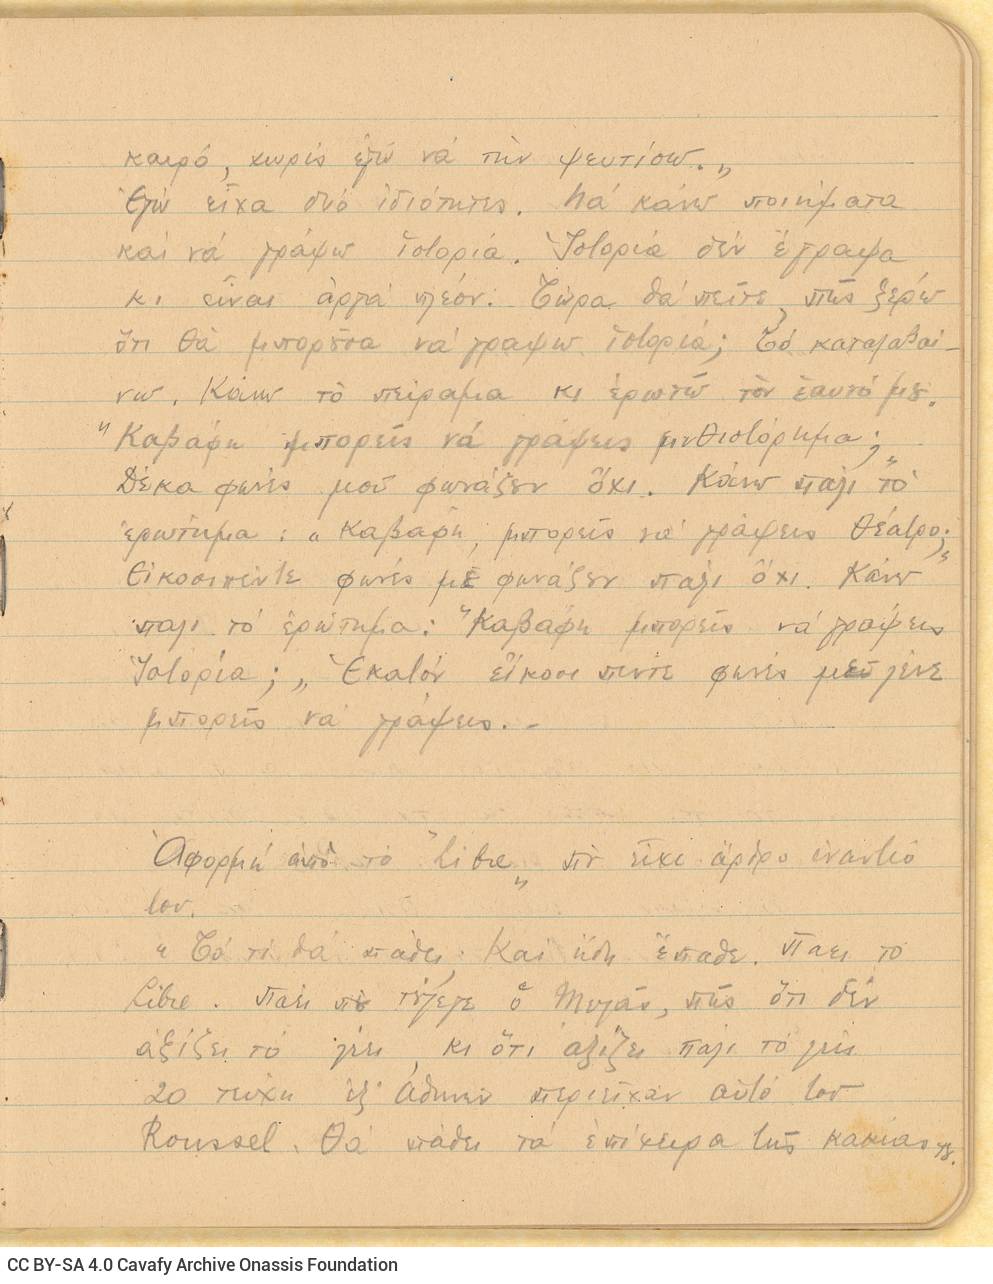 καιρό, χωρίς ἐγώ νά τήν ψευτίσω.„
Ἐγώ εἶχα δυό ἰδιότητες. Νά κάνω ποιήματα
καί νά γράψω ἱστορία. Ἱστορία δέν ἔγραψα
κι εἶναι ἀργά πλέον. Τώρα θά πεῖτε, πῶς ξέρω
ὅτι θά μποροῦσα νά γράψω ἱστορία; Τό καταλαβαί-
νω. Κάνω τό πείραμα κι ἐρωτῶ τόν ἑαυτό μου.
"Καβάφη μπορεῖς νά γράψεις μυθιστόρημα;„
Δέκα φωνές μοῦ φωνάζουν ὄχι. Κάνω πάλι τὸ
ἐρώτημα: „Καβάφη, μπορεῖς νά γράψεις θέατρο;„
Εἰκοσιπέντε φωνές μοῦ φωνάζουν πάλι ὄχι. Κάνω
πάλι τό ἐρώτημα: "Καβάφη μπορεῖς νά γράψεις
Ἱστορία;„ Ἑκατόν εἴκοσι πέντε φωνές μοῦ λένε
μπορεῖς νά γράψεις. -
Ἀφορμή ἀπό τό "Libre„ πού εἶχε ἄρθρο ἐναντίο
του.
"Τό τί θά πάθει. Καί ἤδη ἔπαθε. Πάει το
Libre. Πάει πού τὄλεγε ὁ Μηνᾶς, πῶς ὅτι δέν
ἀξίζει τό λέει, κι ὅτι ἀξίζει πάλι τό λέει
20 τεύχη ἐξ Ἀθηνῶν περιεῖχαν αὐτό του
Roussel. Θά πάθει τά ἐπίχειρα τῆς κακίας του.